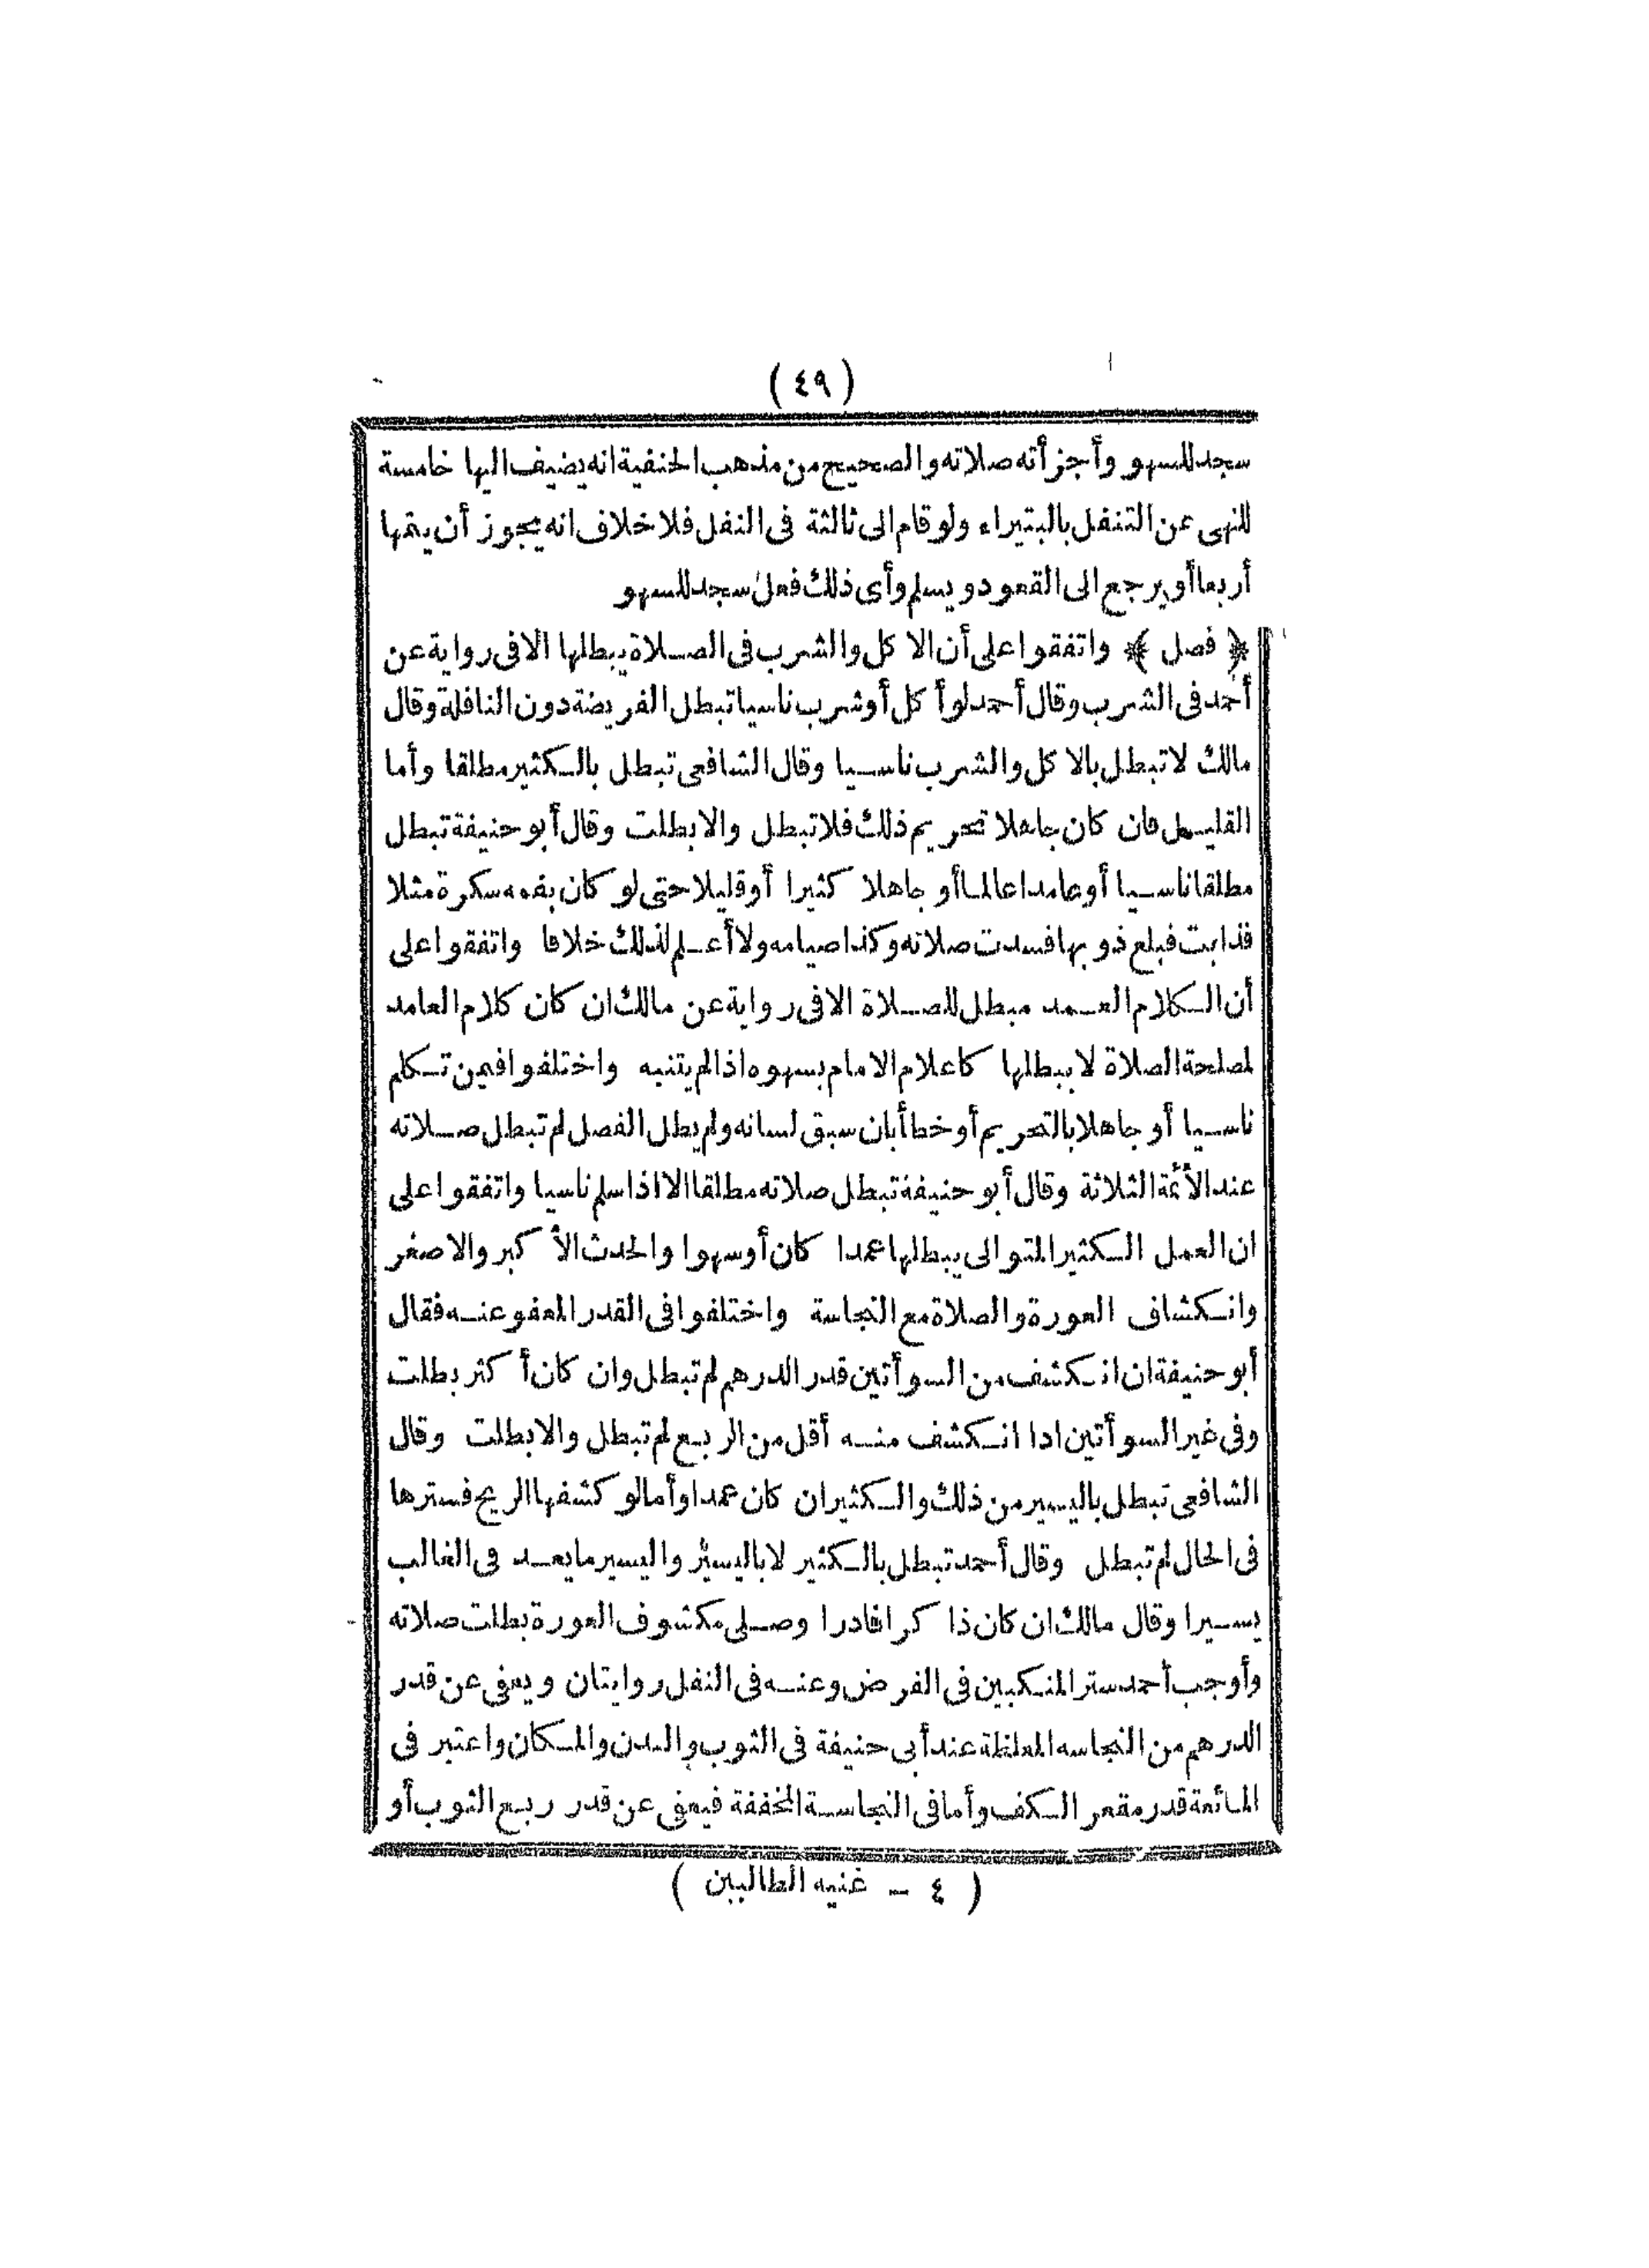 (٤٩)
سجد للسهو وأجزأته صلاته والصحيح من مذهب الحنفية انه يضيف اليها خامسة
للنهى عن التنفل بالبتيراء ولو قام الى ثالثة فى النفل فلا خلاف انه يجوز أن يتمها
أربعا أو يرجع الى القعود ويسلم وأى ذلك فعل سجد للسهو
﴿ فصل ﴾ واتفقوا على أن الاكل والشرب فى الصلاة يبطلها الا فى رواية عن
أحمد فى الشرب وقال أحمد لو أكل أو شرب ناسيا تبطل الفريضة دون النافلة وقال
مالك لا تبطل بالاكل والشرب ناسيا وقال الشافعى تبطل بالكثير مطلقا وأما
القليل فان كان جاهلا تحريم ذلك فلا تبطل والا بطلت وقال أبو حنيفة تبطل
مطلقا ناسيا أو عامدا عالما أو جاهلا كثيرا أو قليلا حتى لو كان بفمه سكرة مثلا
فذابت فبلع ذوبها فسدت صلاته وكذا صيامه ولا أعلم لذلك خلافا واتفقوا على
أن الكلام العمد مبطل للصلاة الا فى رواية عن مالك ان كان كلام العامد
لمصلحة الصلاة لا يبطلها كاعلام الامام بسهوه اذا لم يتنبه واختلفوا فيمن تكلم
ناسيا أو جاهلا بالتحريم أو خطأ بان سبق لسانه ولم يطل الفصل لم تبطل صلاته
عند الأئمة الثلاثة وقال أبو حنيفة تبطل صلاته مطلقا الا اذا سلم ناسيا واتفقوا على
ان العمل الكثير المتوالى يبطلها عمدا كان أو سهوا والحدث الأكبر والاصغر
وانكشاف العورة والصلاة مع النجاسة واختلفوا فى القدر المعفو عنه فقال
أبو حنيفة ان انكشف من السوأتين قدر الدرهم لم تبطل وان كان أكثر بطلت
وفى غير السوأتين اذا انكشف منه أقل من الربع لم تبطل والا بطلت وقال
الشافعى تبطل باليسير من ذلك والكثير ان كان عمدا وأما لو كشفها الريح فسترها
فى الحال لم تبطل وقال أحمد تبطل بالكثير لا باليسير واليسير ما يعد فى الغالب
يسيرا وقال مالك ان كان ذاكرا قادرا وصلى مكشوف العورة بطلت صلاته
وأوجب أحمد ستر المنكبين فى الفرض وعنه فى النفل روايتان ويعفى عن قدر
الدرهم من النجاسه المغلظة عند أبى حنيفة فى الثوب والبدن والمكان واعتبر فى
المائعة قدر مقعر الكف وأما فى النجاسة المخففة فيعفى عن قدر ربع الثوب أو
( ٤ - غنيه الطالبين )